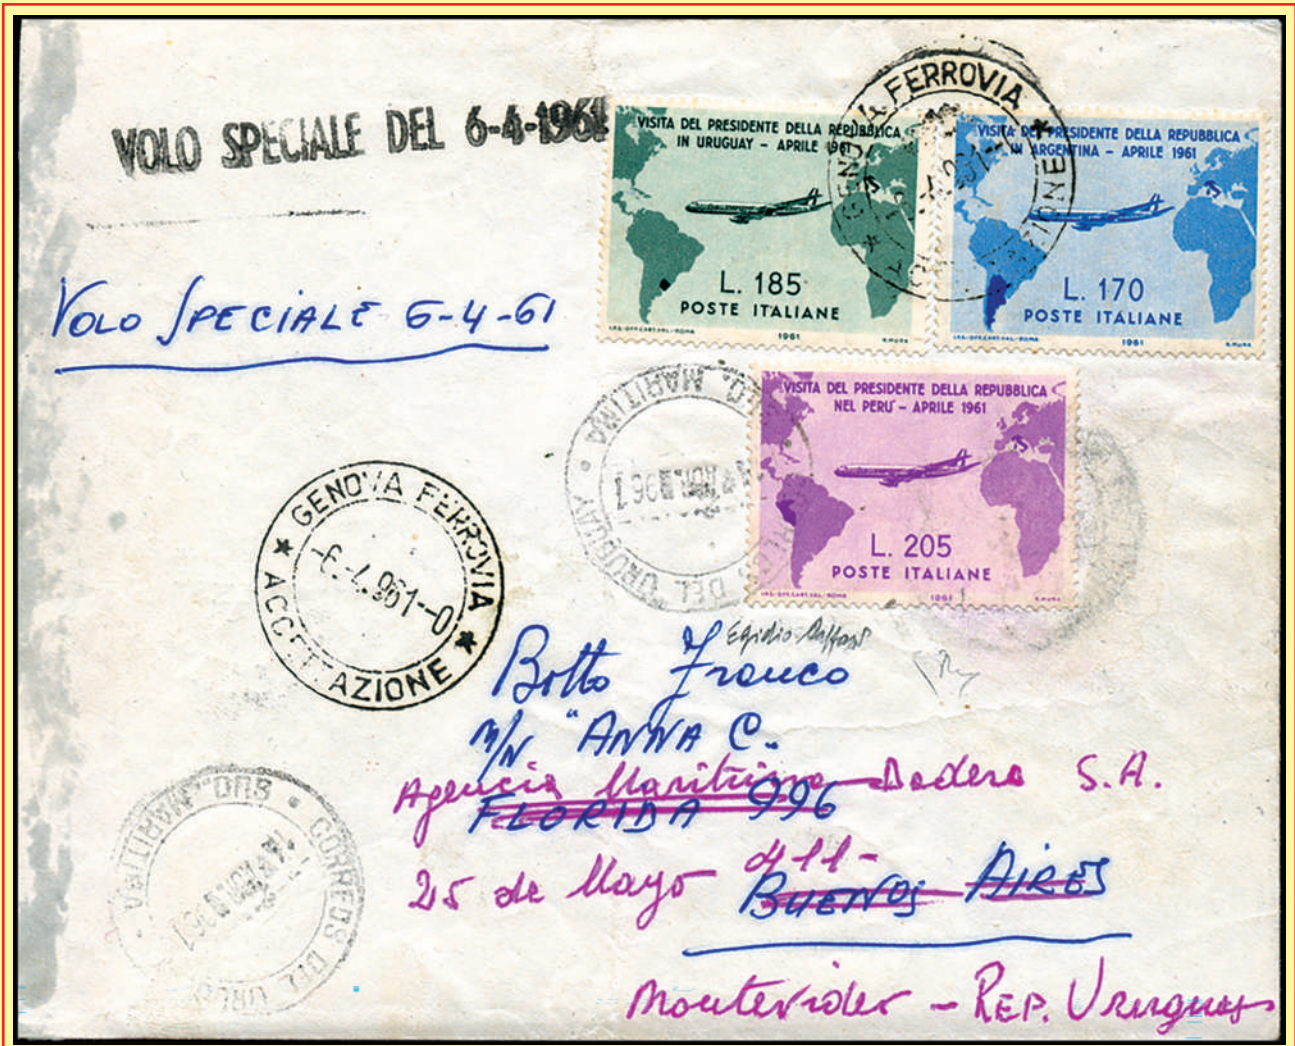 VOLO SPECIALE DEL 6-4-1961
VOLO SPECIALE 6-4-61
VISITA DEL PRESIDENTE DELLA REPUBBLICA
IN URUGUAY - APRILE 1961
L. 185
POSTE ITALIANE
IST. POL. CART. VAL. - ROMA 1961 R. MURA
VISITA DEL PRESIDENTE DELLA REPUBBLICA
IN ARGENTINA - APRILE 1961
L. 170
POSTE ITALIANE
1961 R. MURA
GENOVA FERROVIA
VISITA DEL PRESIDENTE DELLA REPUBBLICA
NEL PERU' - APRILE 1961
L. 205
POSTE ITALIANE
1961 R. MURA
DEL URUGUAY · SUD. MARITIMA
GENOVA FERROVIA
-6.-4.961-0
★ ACCETTAZIONE ★
Botto Franco
M/N "ANNA C.
Agencia Maritima Dodero S.A.
FLORIDA 996
25 de Mayo 411-
BUENOS AIRES
Montevideo - REP. Uruguay
CORREOS DEL URU
SUD. MARITIMA